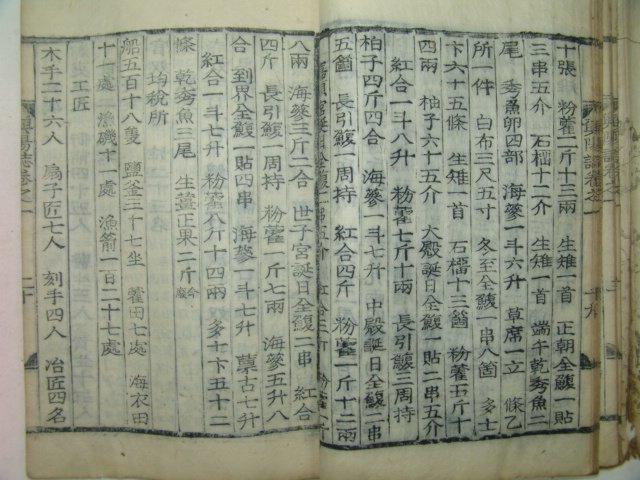 十張 粉藿二斤十三兩 生雉一首 正朝全鰒一貼
三串五介 石榴十二介 生雉一首 端午乾秀魚二
尾 秀魚卵四部 海蔘一斗六升 草席一立 條乙
所一件 白布三尺五寸 冬至全鰒一串八箇 多士
卞六十五條 生雉一首 石榴十三箇 粉藿五斤十
四兩 柚子六十五介 大殿誕日全鰒一貼二串五介
紅合一斗八升 粉藿 兩 長引鰒三周持
柏子四斤四兩 海蔘一斗 升 中殿誕日全鰒二串
五箇 長引鰒一周持 紅合四升 粉藿一斤十二兩
宮誕日全鰒二串五介 紅合三升 粉藿
八兩 海蔘三斤二合 世子宮誕日全鰒二串 紅合
四斤 長引鰒一周持 粉藿一斤七兩 海蔘五升八
合 到界全鰒一貼四串 海蔘一斗七升 藁古七升
紅合一斗七升 粉藿八斤十四兩 多士卞五十二
條 乾秀魚三尾 生薑正果二斤 今廢
均稅所
船五百十八隻 鹽釜三十七坐 藿田七處 海衣田
十一處 漁磯十一處 漁箭一百二十七處
工匠
木手二十六人 扇子匠七人 刻手四人 冶匠四名
興陽誌卷之一
二十
興陽誌卷之一
十九